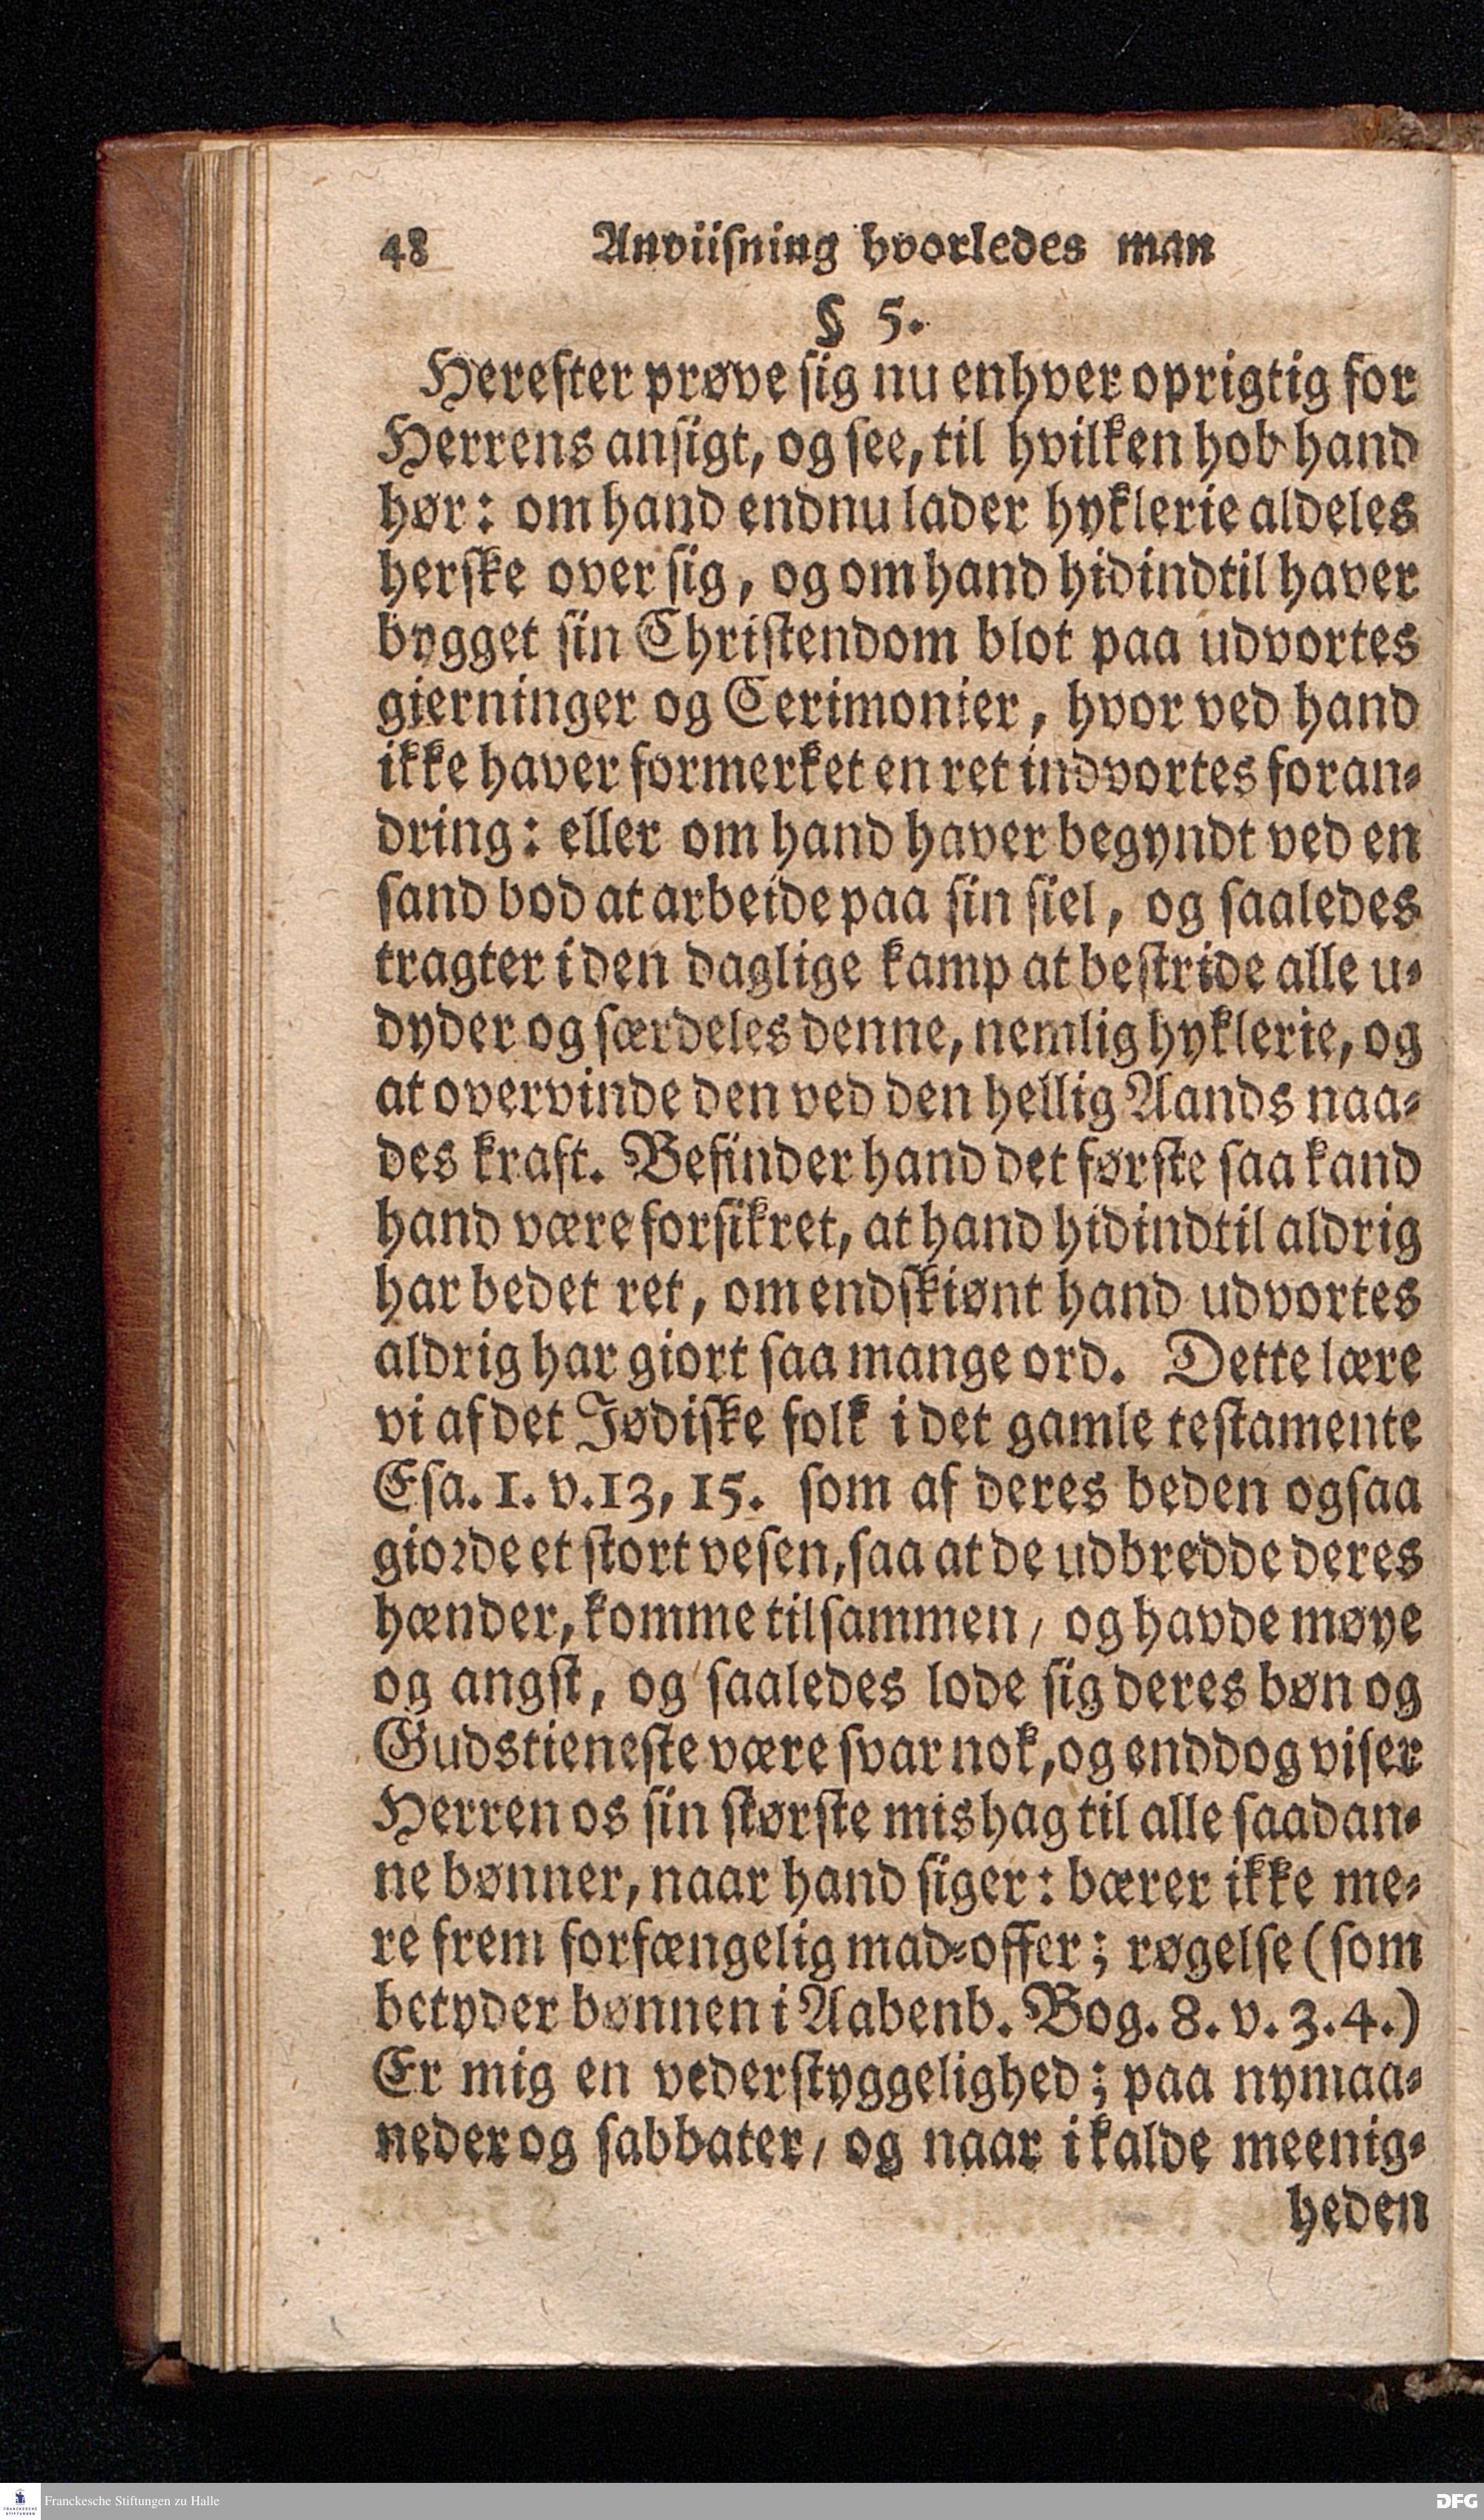 48 Anviisning hvorledes man
§ 5.
Herefter prøve sig nu enhver oprigtig for
Herrens ansigt, og see, til hvilken hob hand
hør: om hand endnu lader hyklerie aldeles
herske over sig, og om hand hidindtil haver
bygget sin Christendom blot paa udvortes
gierninger og Cerimonier, hvor ved hand
ikke haver formerket en ret indvortes foran-
dring: eller om hand haver begyndt ved en
sand bod at arbeide paa sin siel, og saaledes
tragter i den daglige kamp at bestride alle u-
dyder og særdeles denne, nemlig hyklerie, og
at overvinde den ved den hellig Aands naa-
des kraft. Befinder hand det første saa kand
hand være forsikret, at hand hidindtil aldrig
har bedet ret, om endskiønt hand udvortes
aldrig har giort saa mange ord. Dette lære
vi af det Jødiske folk i det gamle testamente
Esa. 1. v. 13, 15. som af deres beden ogsaa
giorde et stort vesen, saa at de udbredde deres
hænder, komme tilsammen / og havde møye
og angst, og saaledes lode sig deres bøn og
Gudstieneste være svar nok, og enddog viser
Herren os sin største mishag til alle saadan-
ne bønner, naar hand siger: bærer ikke me-
re frem forfængelig mad-offer; røgelse (som
betyder bønnen i Aabenb. Bog. 8. v. 3. 4.)
Er mig en vederstyggelighed; paa nymaa-
neder og sabbater / og naar i kalde meenig-
heden
Franckesche Stiftungen zu Halle
DFG